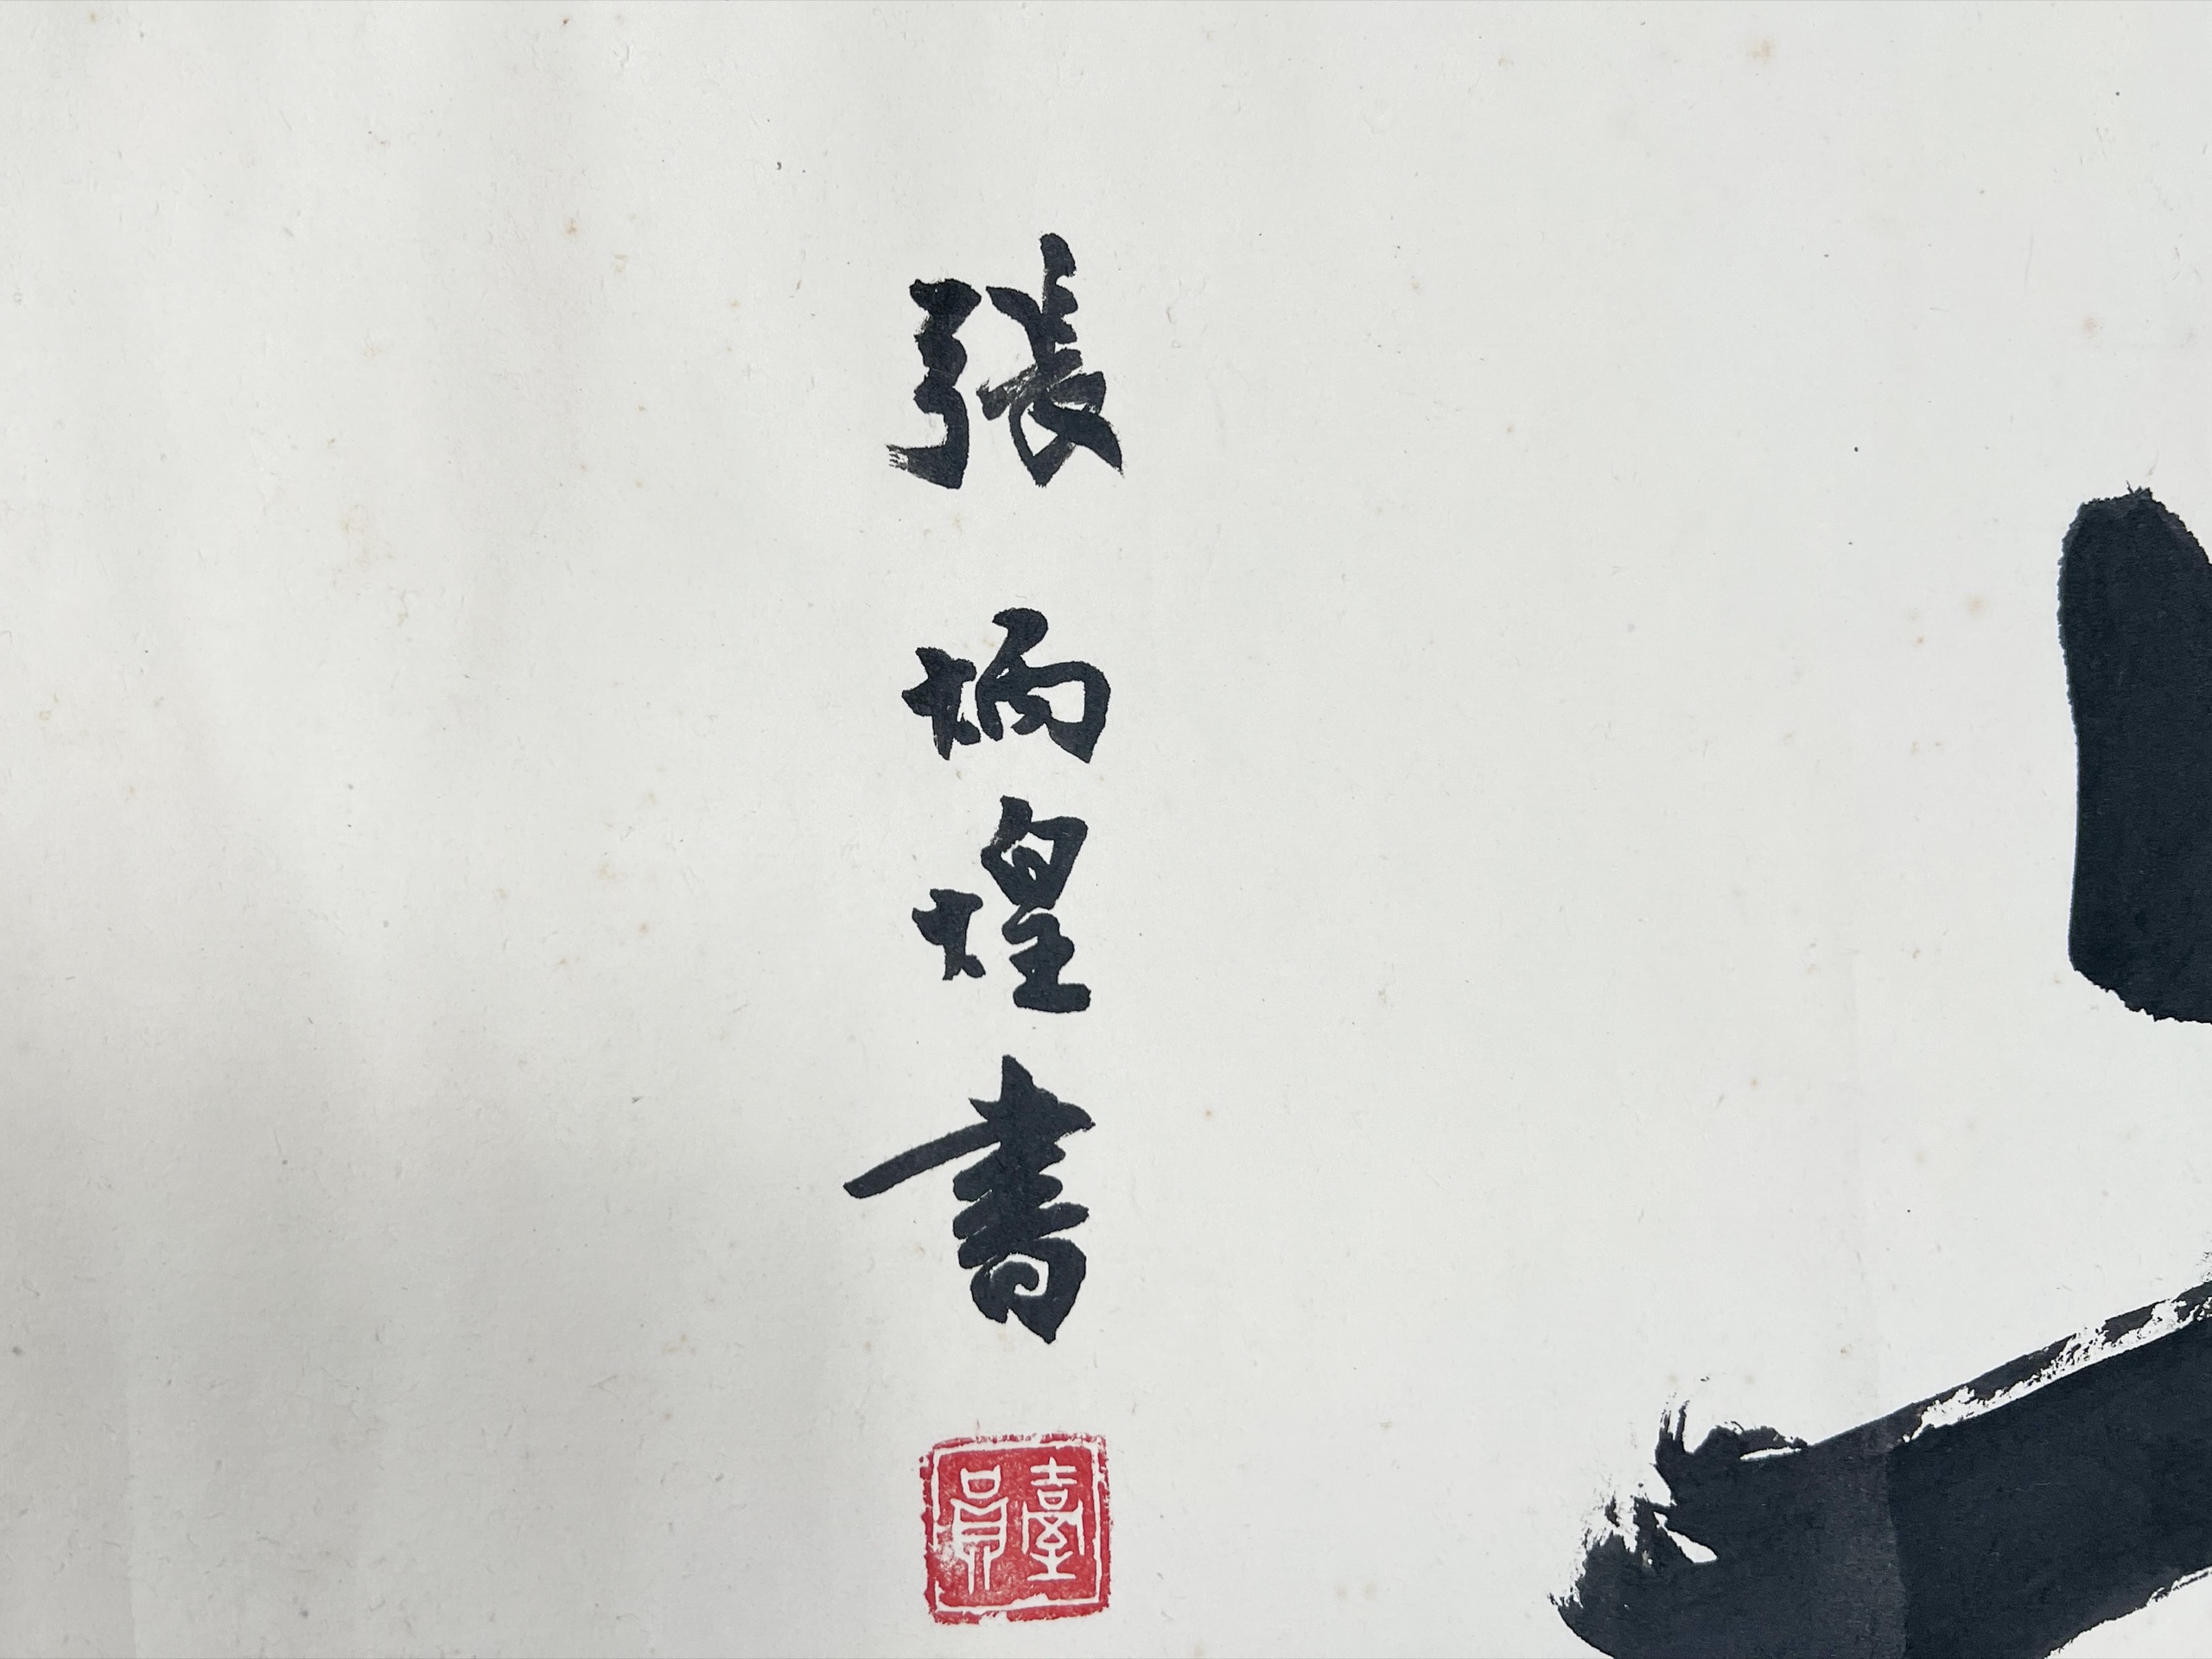 張炳煌書
臺員